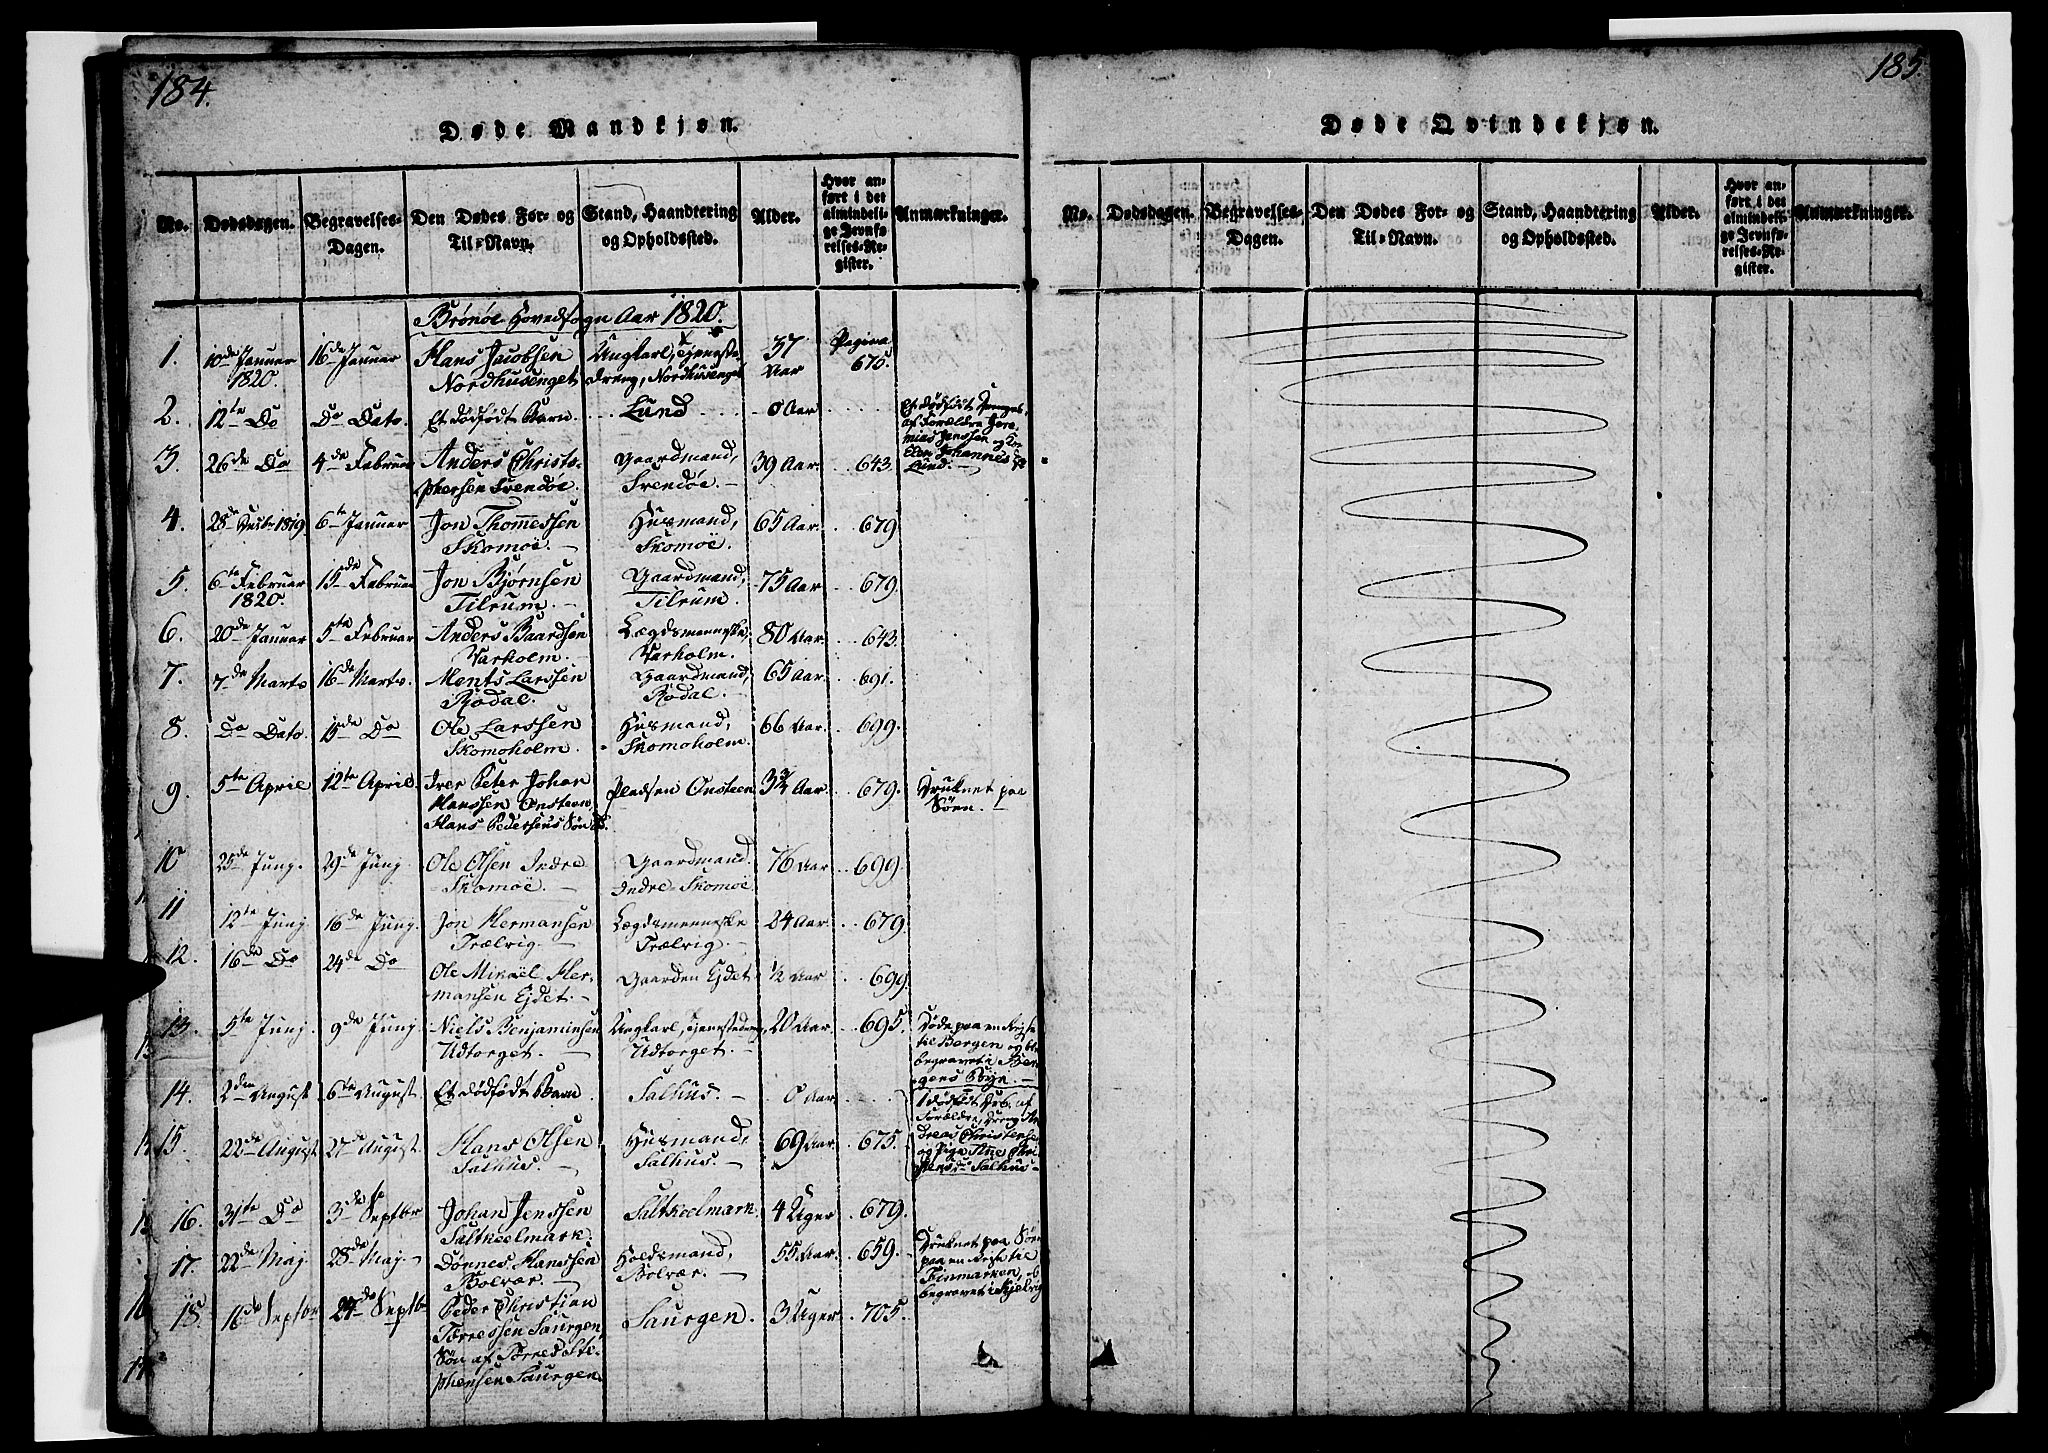 184.
Døde Mandkjøn.
No. Dødsdagen. Begravelses-Dagen. Den Dødes For- og Til-Navn. Stand, Haandtering og Opholdssted. Alder. Hvor anført i det almindelige Jevnførelses-Register. Anmærkninger.
Brönöe Hovedsogn Aar 1820.
1. 10de Januar 1820. 16de Januar Hans Jacobsen Nordhusenget Ungkarl, Tjenestedreng, Nordhusenget 37 Aar Pagina 675.
2. 12te Do Do Dato. Et dödfödt Barn. Lund 0 Aar Et dödfödt Drenge, af Forældre Jeremias Jenssen og Kone Elen Johannesdr Lund.
3. 26de Do 4de Februar Anders Christophersen Trendöe. Gaardmand, Trendöe. 39 Aar. 643.
4. 28de Decbr 1819. 6te Januar Jon Thomessen Skomöe. Husmand, Skomöe. 65 Aar. 679.
5. 6te Februar 1820. 15de Februar Jon Björnsen Tilrum. Gaardmand, Tilrum. 75 Aar 679.
6. 20de Januar 5te Februar Anders Baardsen Varholm. Lægdsmenneske, Varholm. 80 Aar. 643.
7. 7de Marts 16de Marts. Ments Larssen Rodal. Gaardmand, Rodal. 65 Aar. 691.
8. Do Dato. 15de Do Ole Larssen Skomoholm. Husmand, Skomoholm. 66 Aar. 699.
9. 5te April 12te April. Iver Peter Johan Hanssen Onsteen, Hans Pedersens Sön Pladsen Onsteen 3¾ Aar. 679. Druknet paa Söen.
10 25de Junj. 29de Junj. Ole Olsen Indre Skomöe. Gaardmand. Indre Skomöe 76 Aar 699.
11 12te Junj 16de Junj. Jon Hermansen Trælvig. Lægdsmenneske Trælvig. 24 Aar. 679.
12. 16de Do 24de Do Ole Mikaël Hermansen Ejdet. Gaarden Ejdet ½ Aar 699.
13. 5te Junj. 9de Junj Niels Benjaminsen Udtorget. Ungkarl, Tjenestedreng, Udtorget. 20 Aar. 695. Döde paa en Rejse til Bergen og bl. begravet i Bergens Bye.
14. 2den August 6te August. Et dödfödt Barn Salhus. 0 Aar 1 dödfödt Drb. af Forældre, Dreng Andreas Christensen og Pige Ane Salhus
15. 22de August 27de August. Hans Olsen Salhus. Husmand, Salhus. 69 Aar 675.
16. 31te Do 3de Septbr Johan Jenssen Saltkoelmark. Saltkoelmark. 4 Uger 679.
17. 22de Maj 28de Maj Dönnes Hanssen Bolvær. Holdsmand, Bolvær. 55 Aar. 659. Druknet paa Söen paa en Rejse til Finmarken, og begravet i Kjelvig
18. 16de Septbr 24de Septbr Peder Christian Torressen Saurgen, Sön af Torres Stephensen Saurgen. Saurgen. 3 Uger 705.
185.
Døde Qvindekjøn.
No. Dødsdagen. Begravelses-Dagen. Den Dødes For- og Til-Navn. Stand, Haandtering og Opholdssted. Alder. Hvor anført i det almindelige Jevnførelses-Register. Anmærkninger.